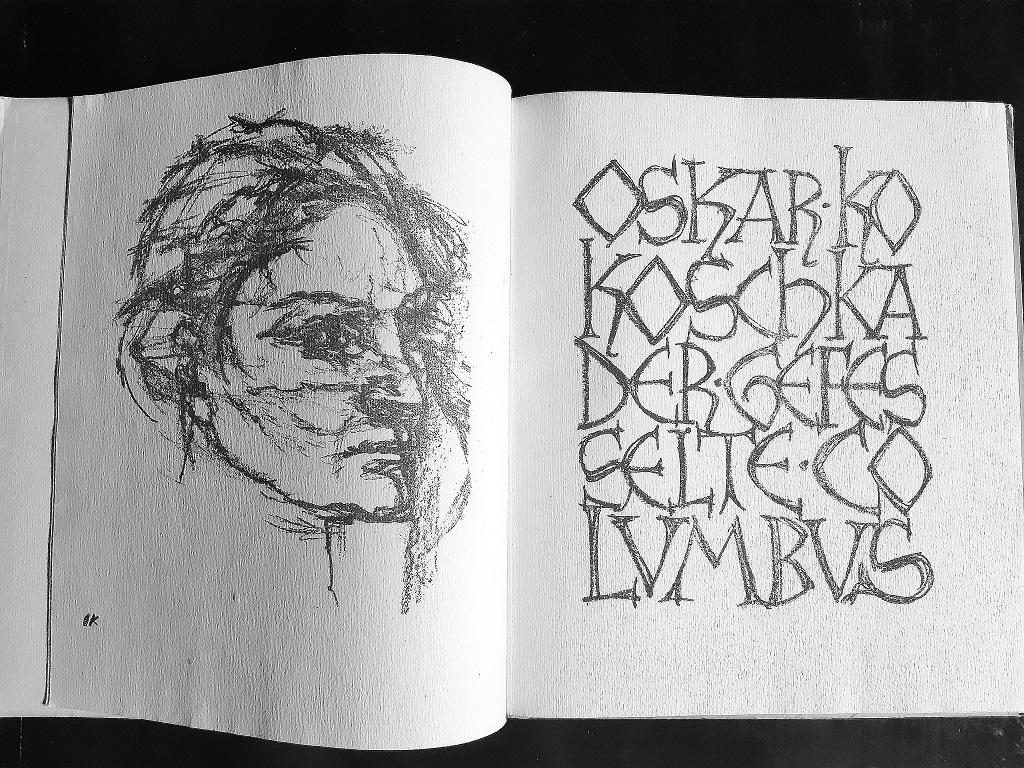 OK
OSKAR·KO
KOSChKA
DER·GEFES
SELTE·CO
LVMBVS